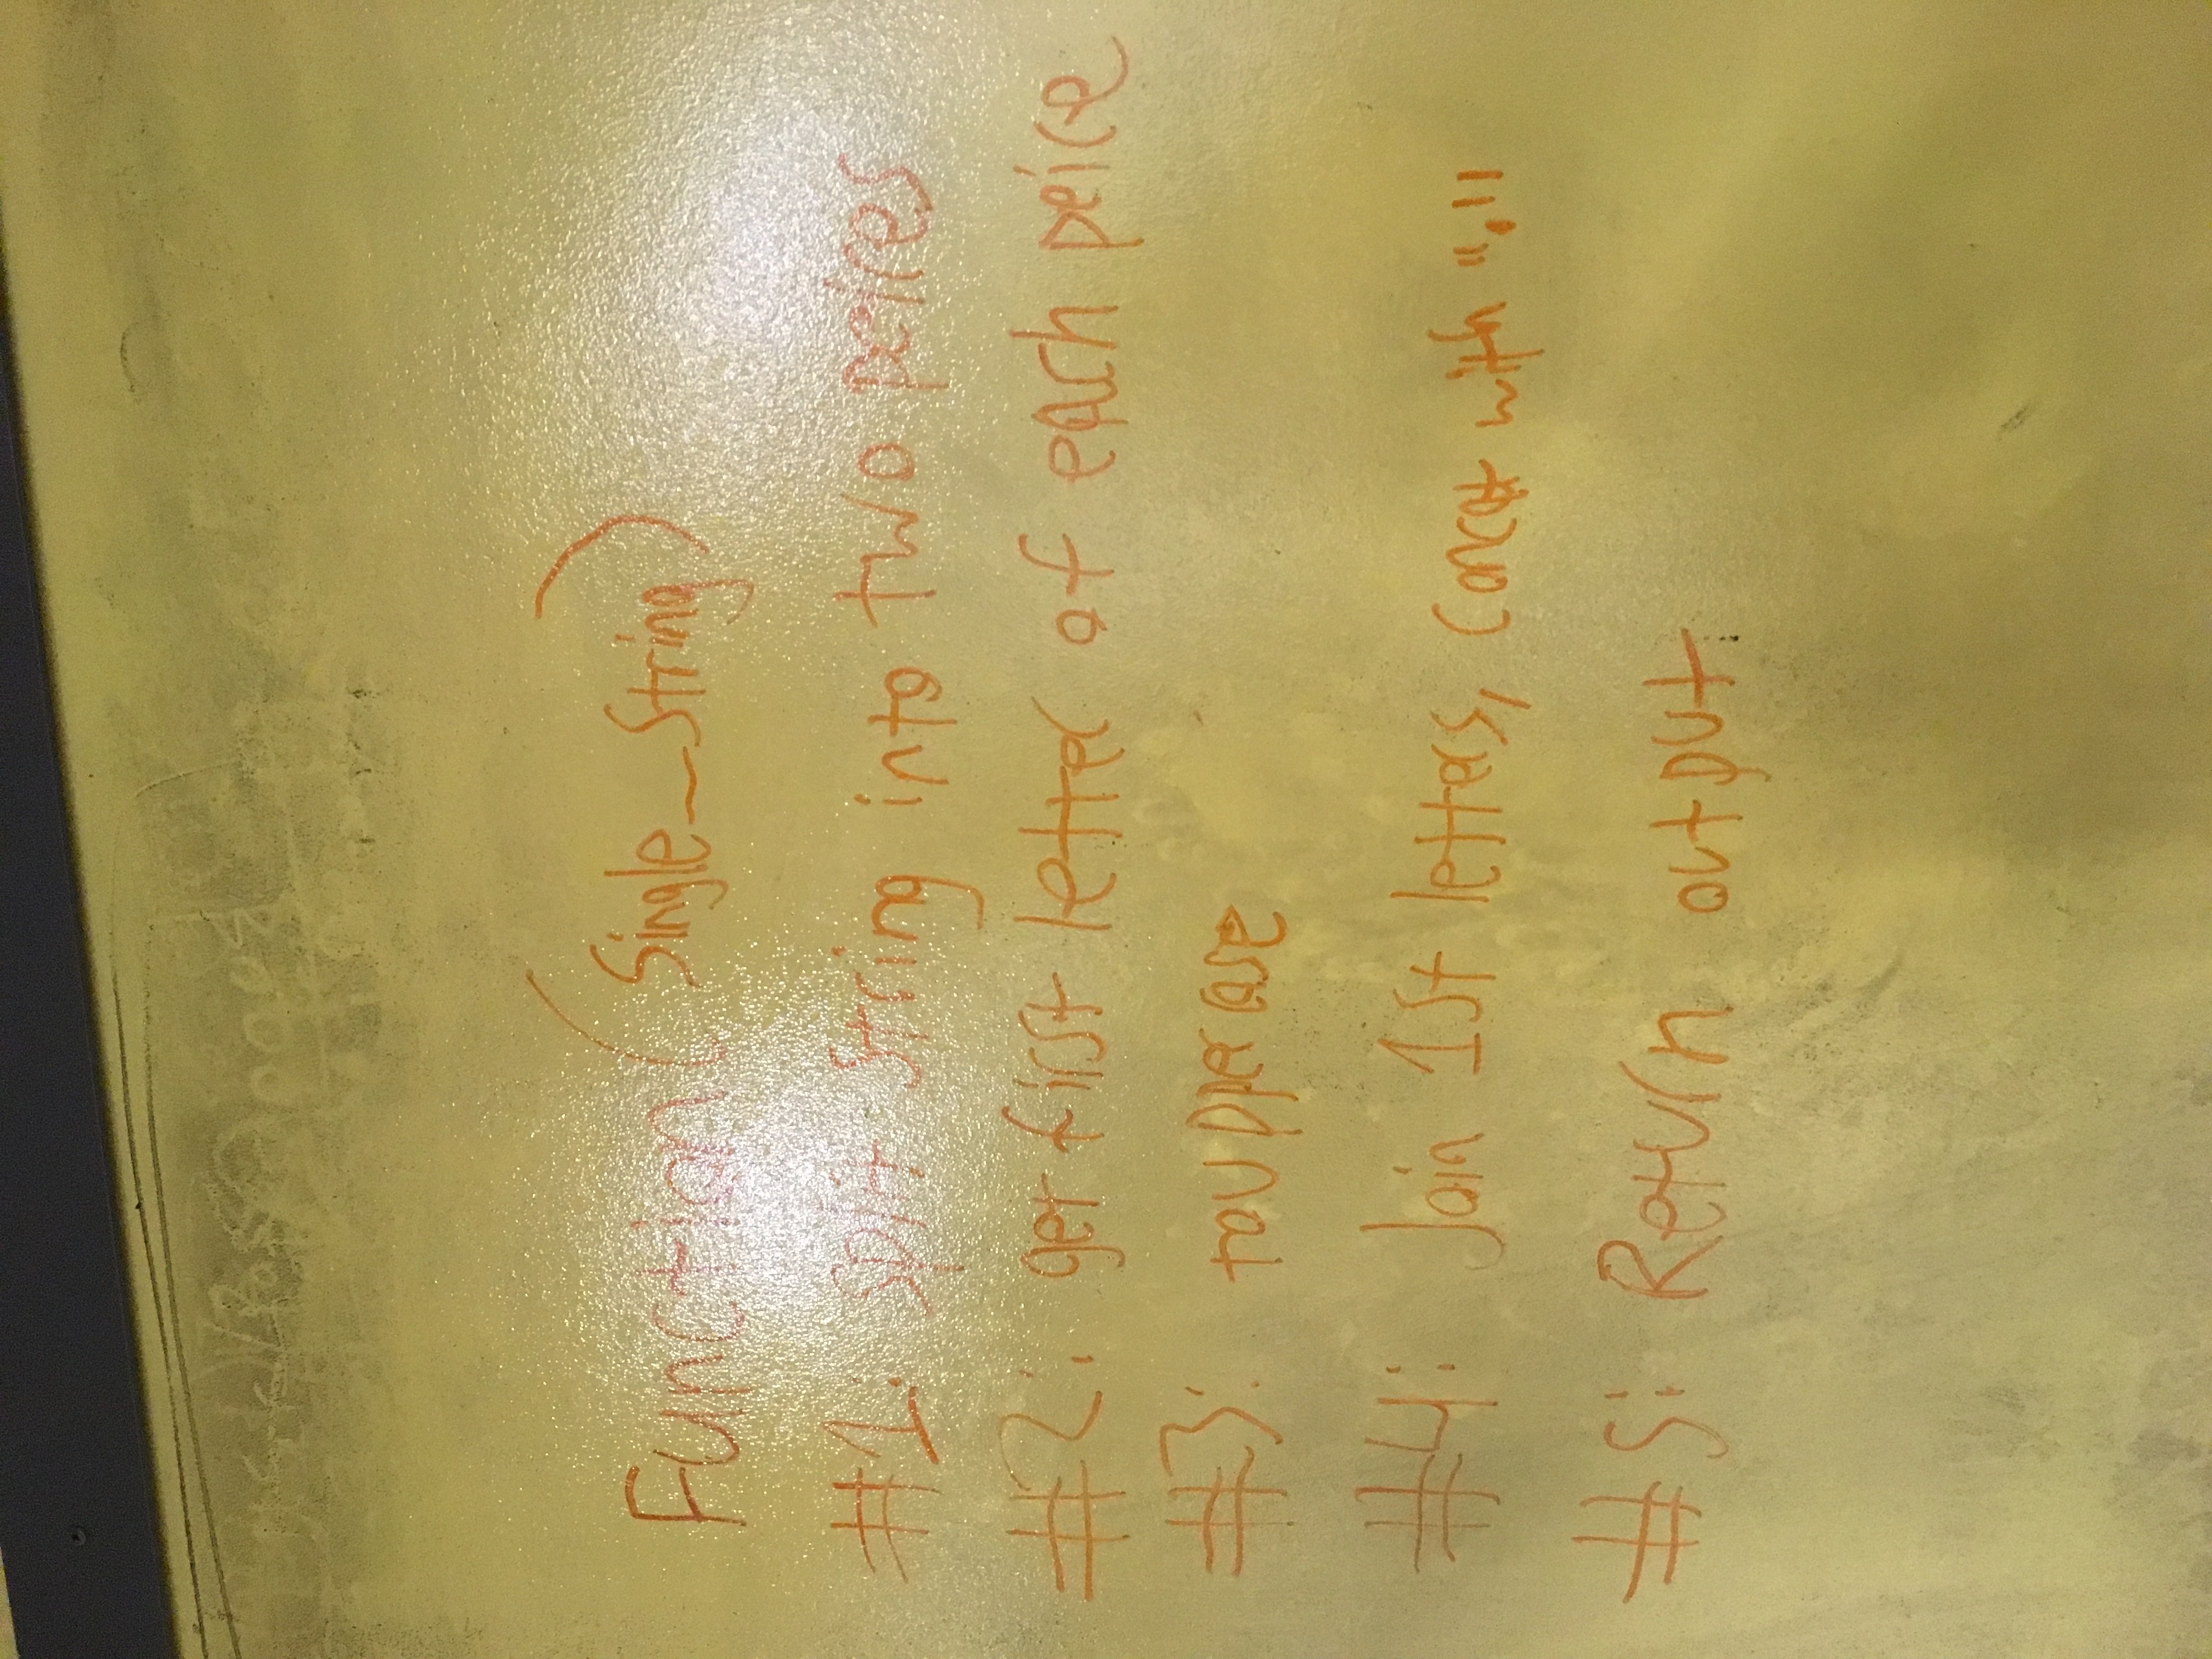 Function(Single_String)
#1: Split String into two peices
#2: get first letter of each peice
#3: touppercase
#4: Join 1st letters, concat with "."
#5: Return output